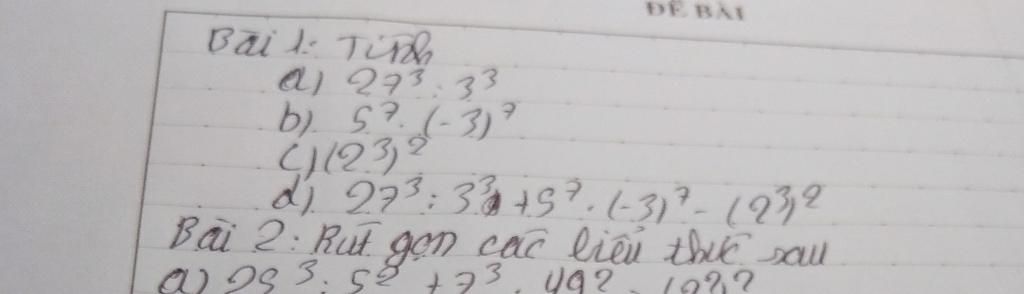 ĐỀ BÀI
Bài 1: Tính
a) 27³ : 3³
b) 5⁷ . (-3)⁷
c) (2³)²
d) 27³ : 3³ + 5⁷ . (-3)⁷ - (2³)²
Bài 2: Rút gọn các biểu thức sau
a) 25³ : 5² + 7³ . 49²